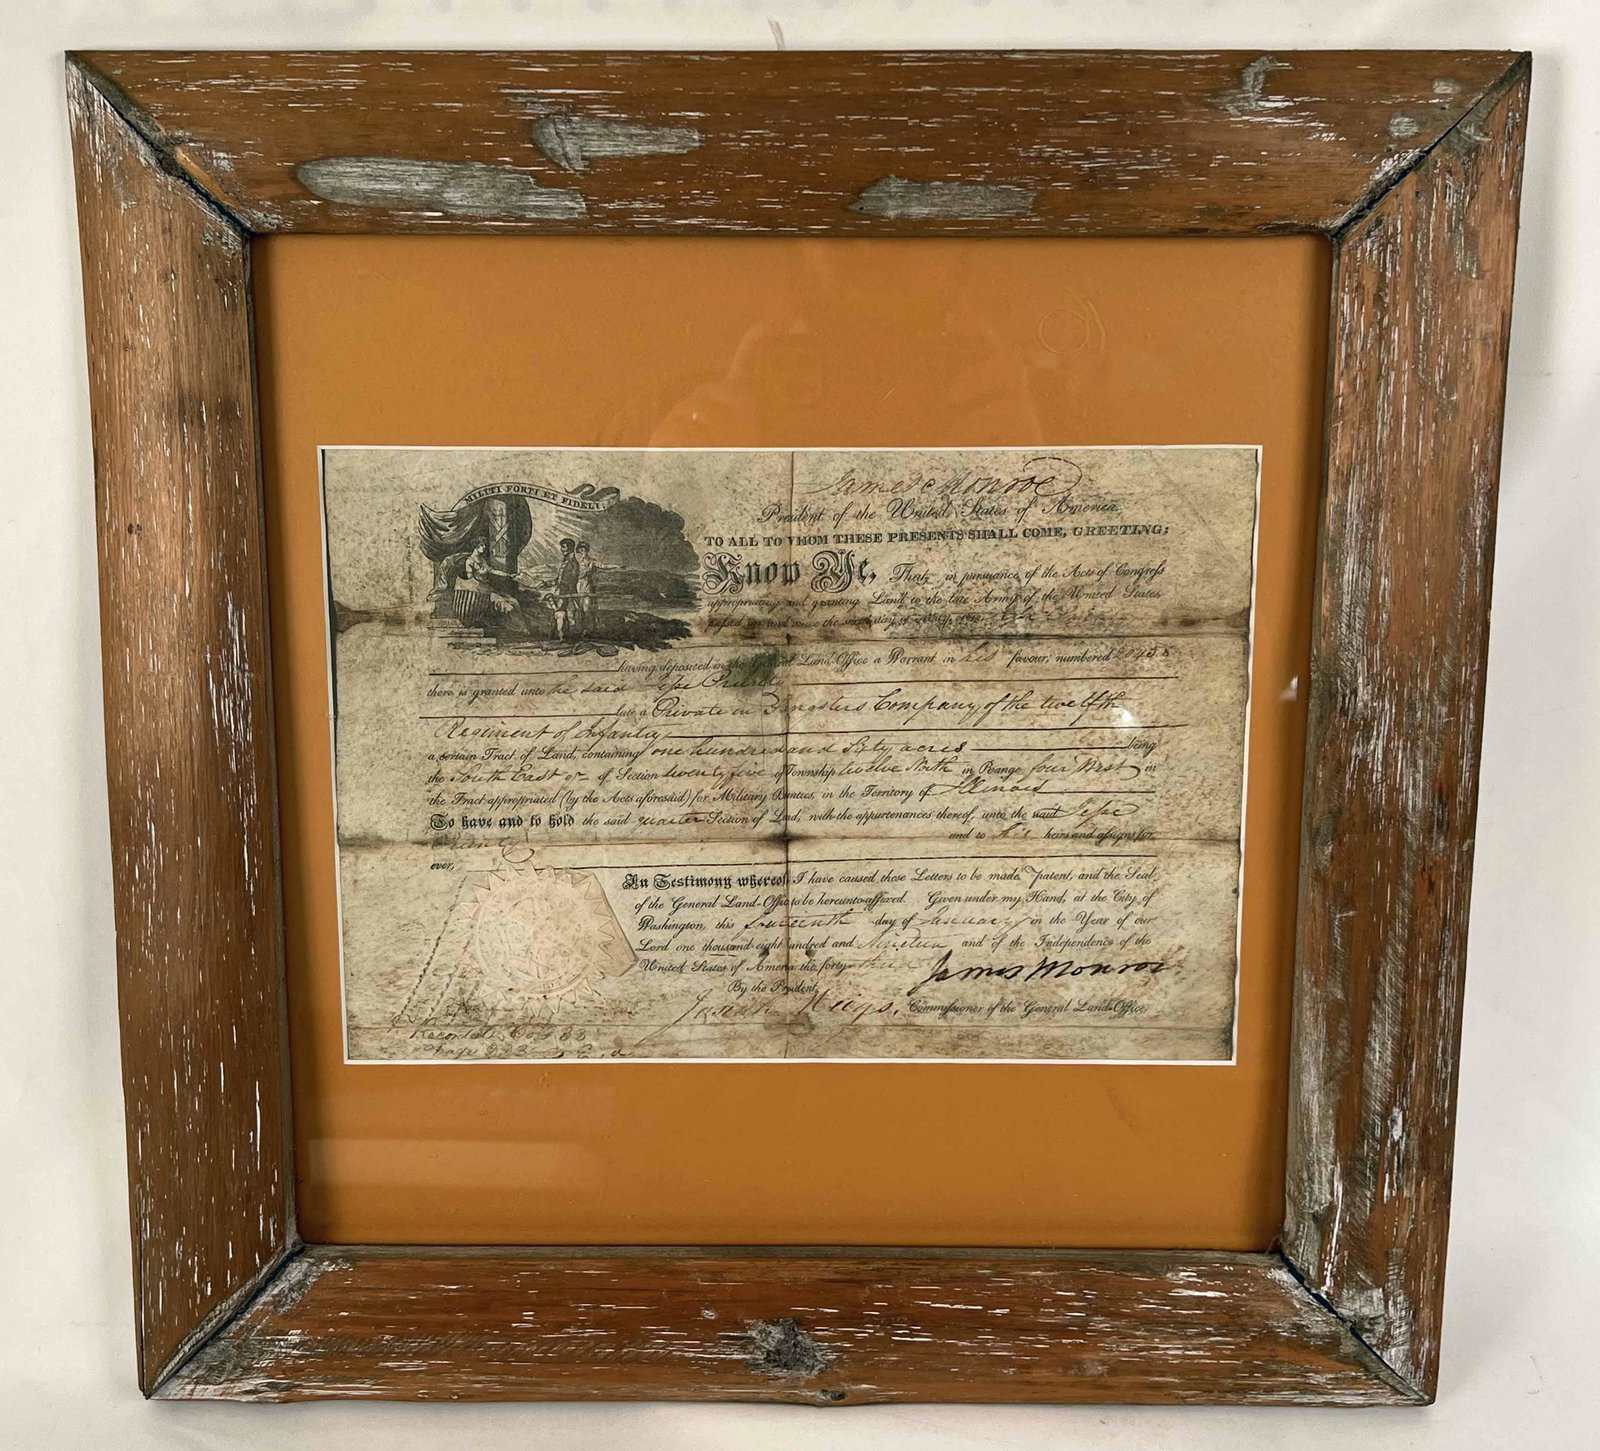 MILITI FORTI ET FIDELI
James Monroe
President of the United States of America.
TO ALL TO WHOM THESE PRESENTS SHALL COME, GREETING:
Know Ye, That, in pursuance of the Acts of Congress
appropriating and granting Land to the late Army of the United States,
passed on and since the sixth day of
having deposited in the General Land-Office a Warrant in his favour, numbered
there is granted unto the said
late a Private in Sangsters Company, of the twelfth
Regiment of Infantry
a certain Tract of Land, containing one hundred and sixty acres being
the South East qr of Section twenty five of Township twelve North in Range four West in
the Tract appropriated (by the Acts aforesaid) for Military Bounties, in the Territory of Illinois
To have and to hold the said quarter Section of Land, with the appurtenances thereof, unto the said Jesse
and to his heirs and assigns for
ever,
In Testimony whereof, I have caused these Letters to be made Patent, and the Seal
of the General Land-Office to be hereunto affixed. Given under my Hand, at the City of
Washington, this fourteenth day of January in the Year of our
Lord one thousand eight hundred and Nineteen and of the Independence of the
United States of America the forty third
James Monroe
By the President,
Josiah Meigs, Commissioner of the General Land-Office.
Recorded, 
Page